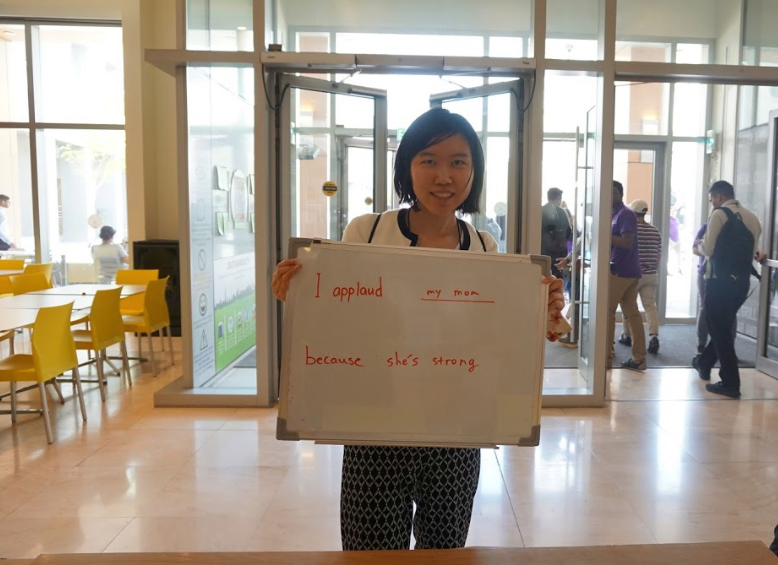 I applaud my mom
because she's strong